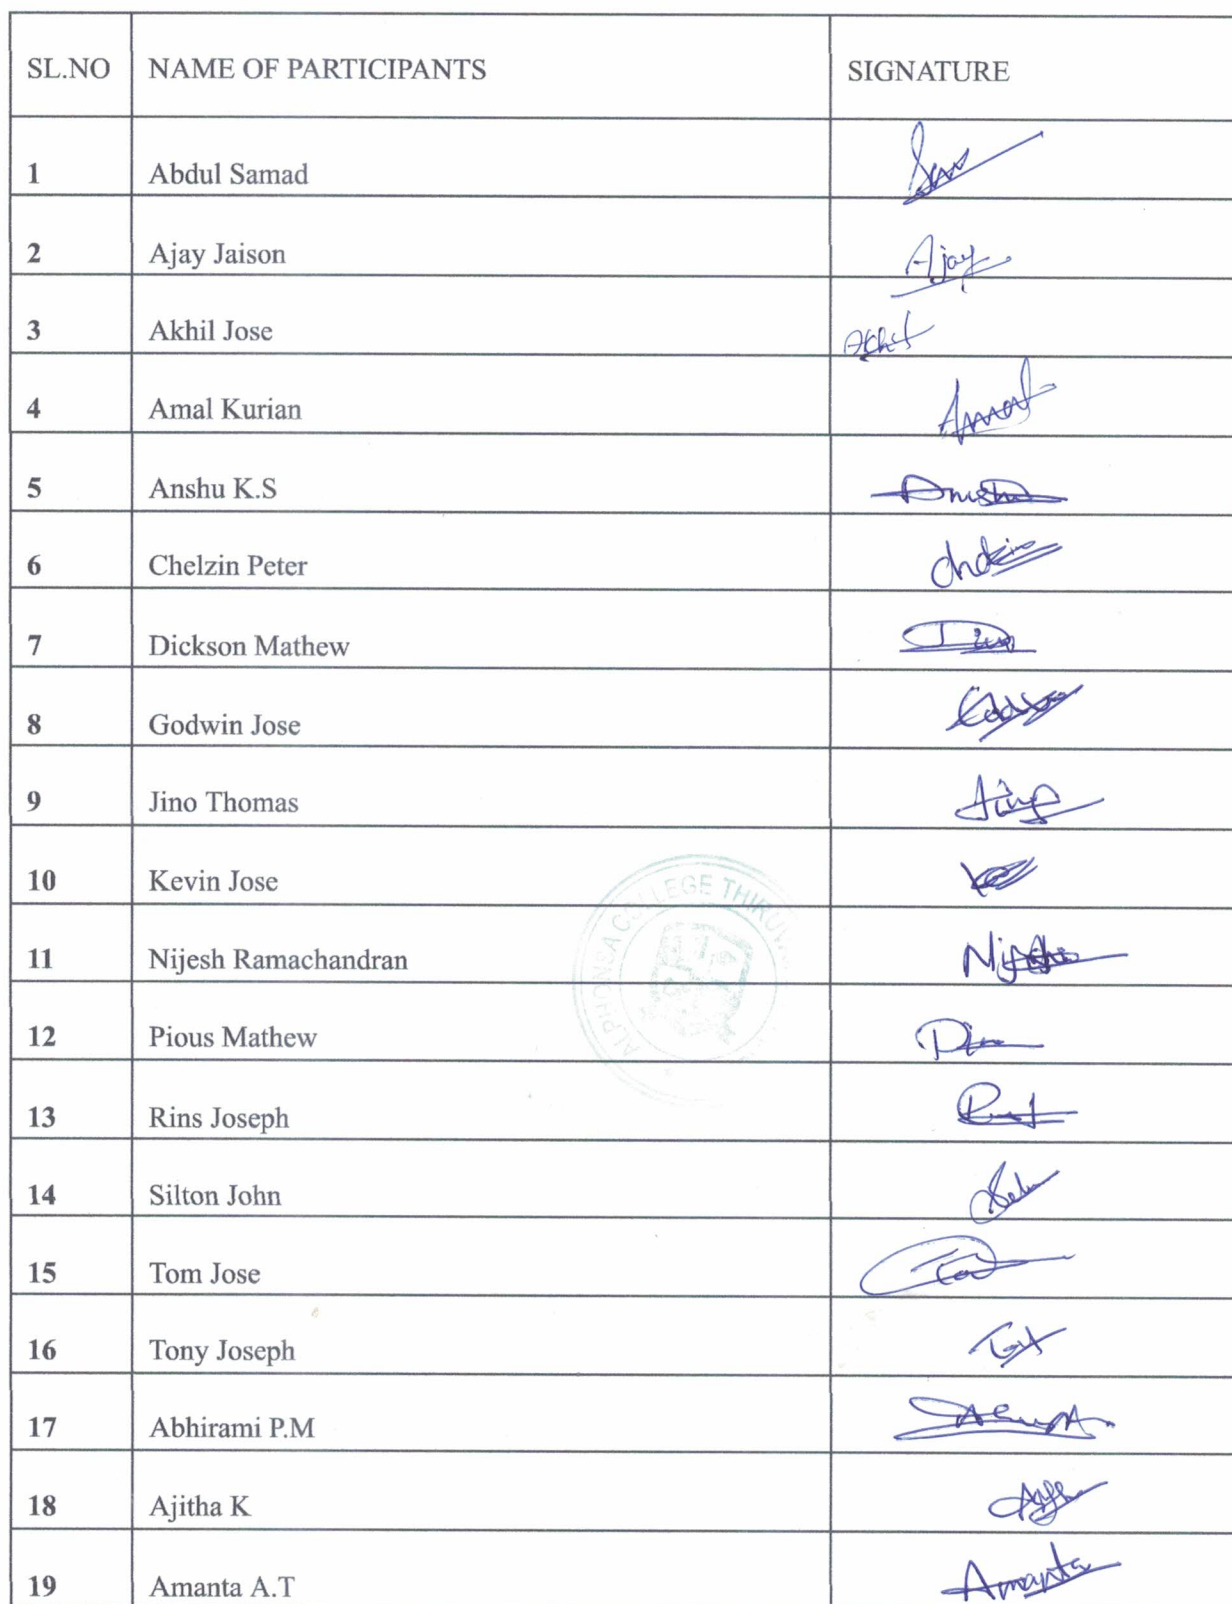 SL.NO NAME OF PARTICIPANTS SIGNATURE
1 Abdul Samad
2 Ajay Jaison Ajay
3 Akhil Jose Akhil
4 Amal Kurian Amal
5 Anshu K.S
6 Chelzin Peter
7 Dickson Mathew
8 Godwin Jose
9 Jino Thomas Jino
10 Kevin Jose
11 Nijesh Ramachandran
12 Pious Mathew
13 Rins Joseph
14 Silton John
15 Tom Jose
16 Tony Joseph
17 Abhirami P.M
18 Ajitha K
19 Amanta A.T Amanta
ALPHONSA COLLEGE